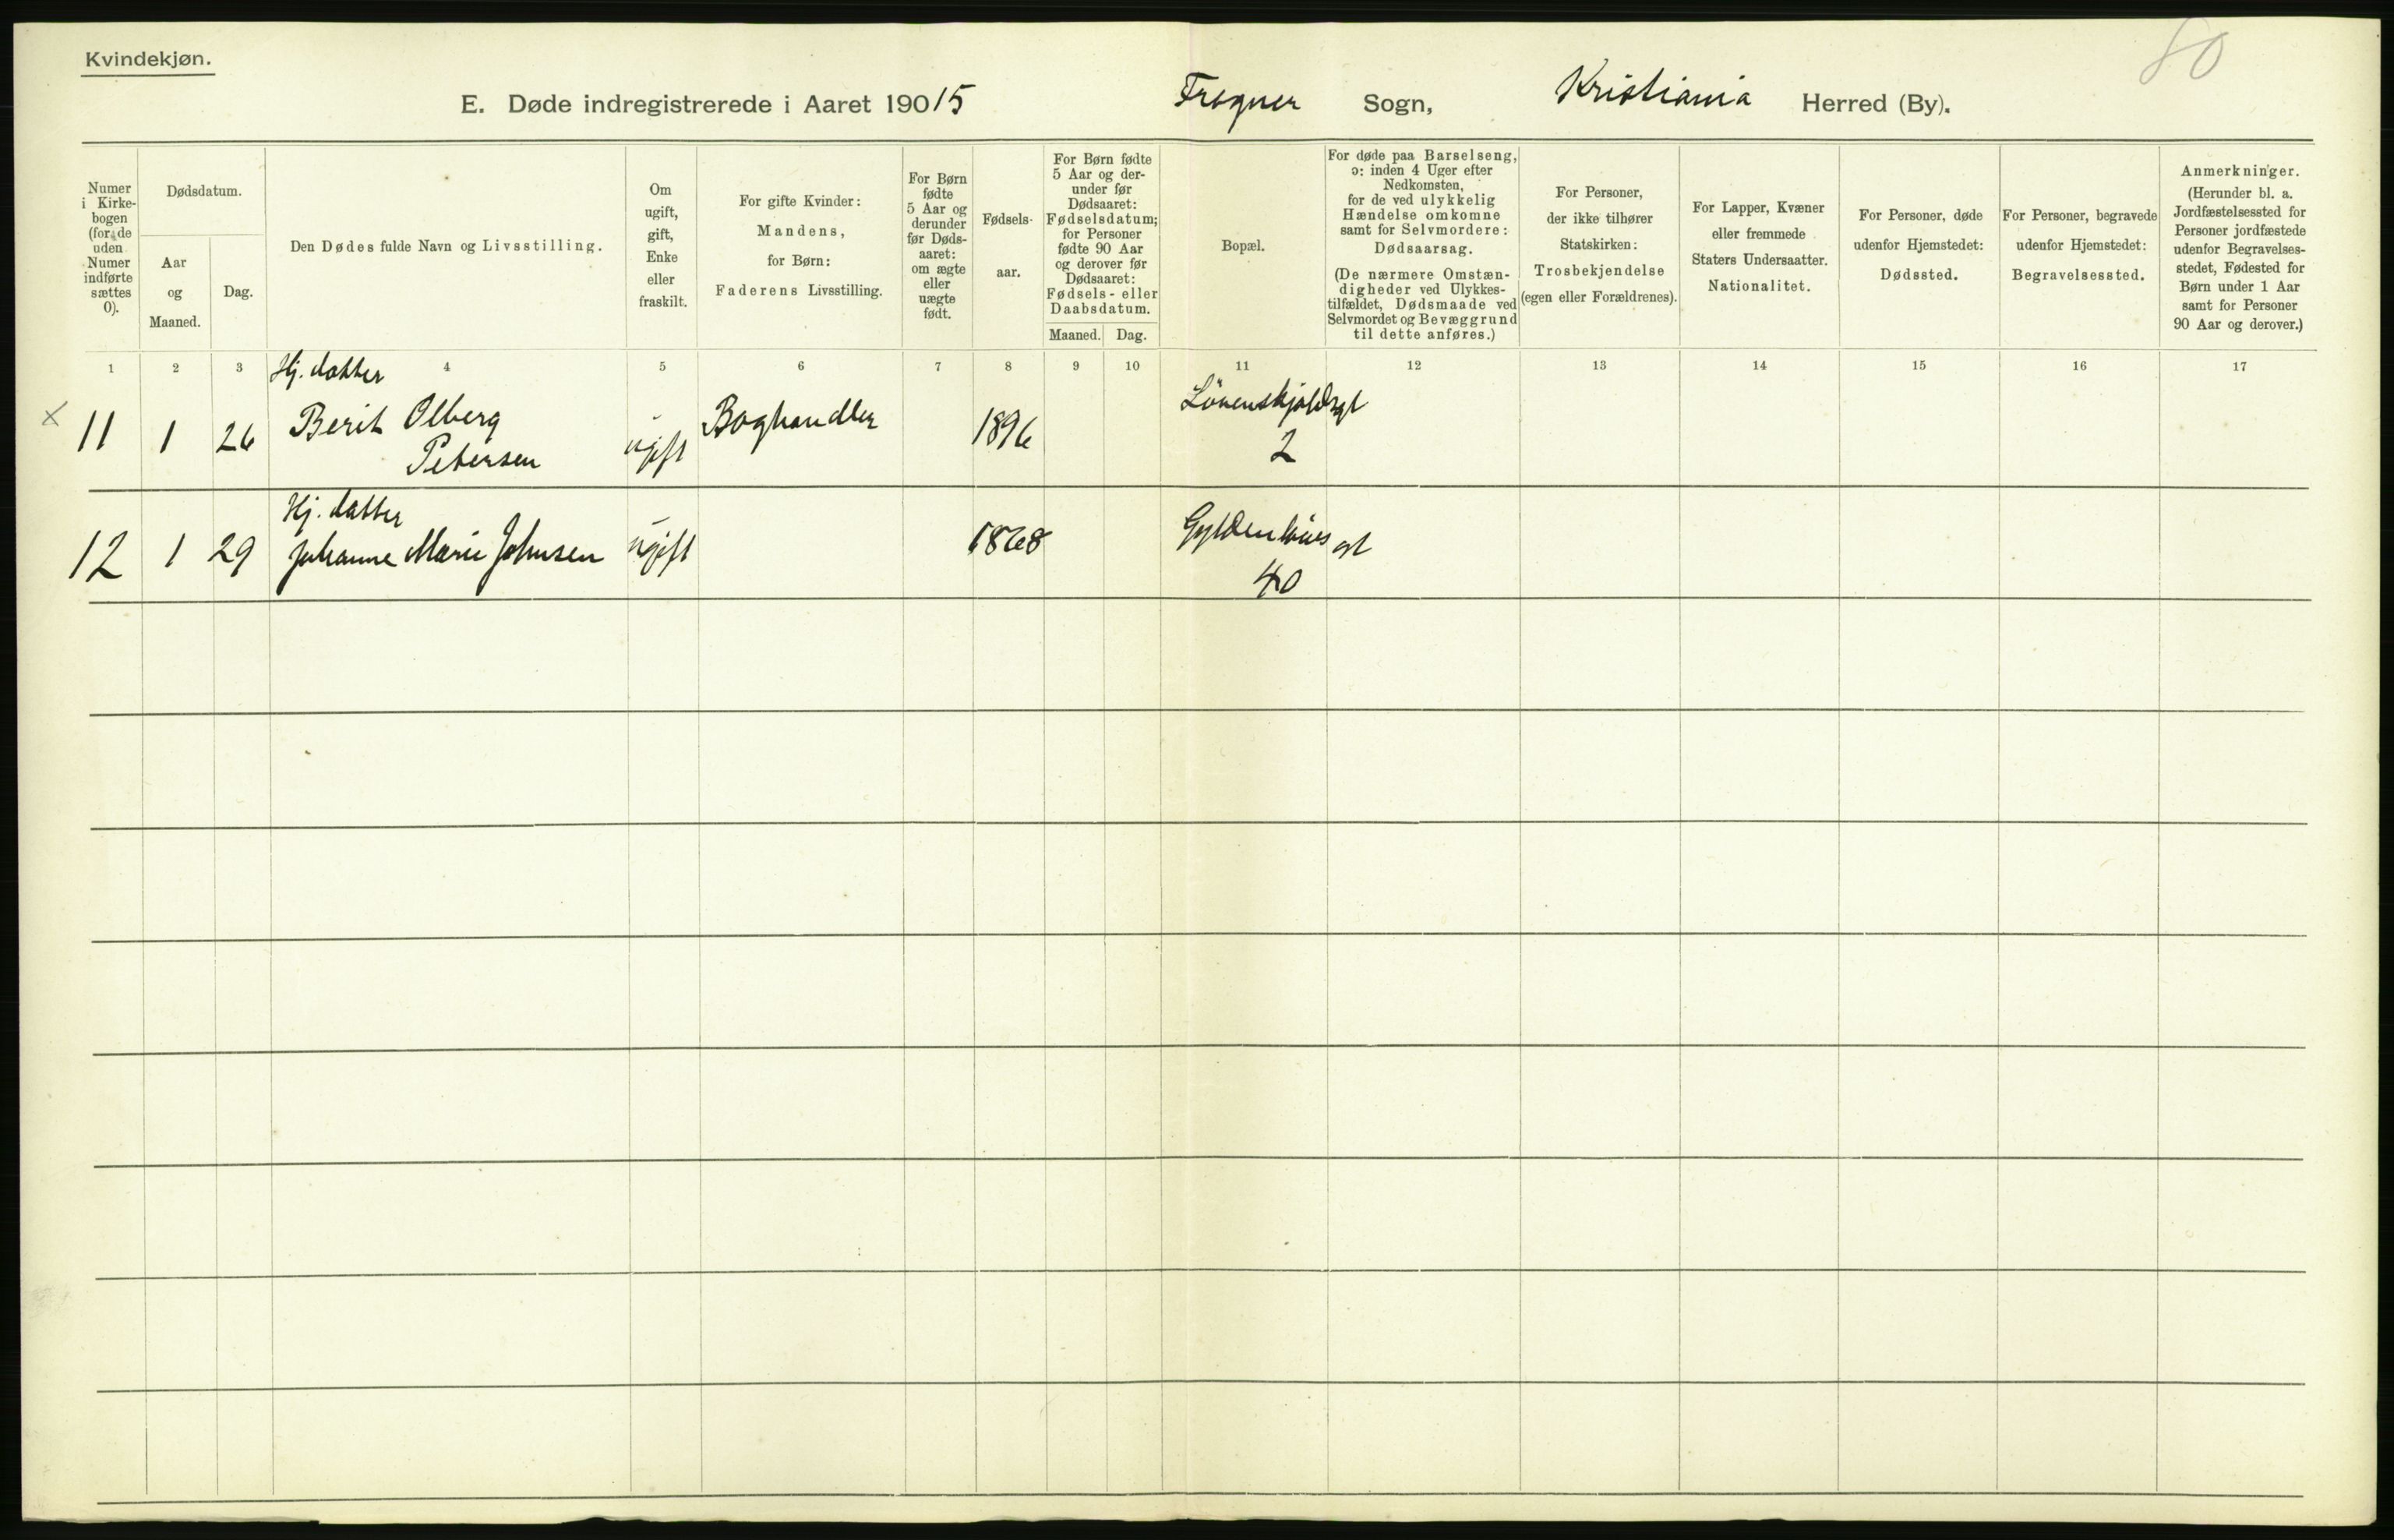 Kvindekjøn.
80
E. Døde indregistrerede i Aaret 19015 Frogner Sogn, Kristiania Herred (By).
Numer
i Kirke-
bogen
(for de
uden
Numer
indførte
sættes
0).
Dødsdatum.
Aar
og
Maaned.
Dag.
Den Dødes fulde Navn og Livsstilling.
Om
ugift,
gift,
Enke
eller
fraskilt.
For gifte Kvinder:
Mandens,
for Børn:
Faderens Livsstilling.
For Børn
fødte
5 Aar og
derunder
før Døds-
aaret:
om ægte
eller
uægte
født.
Fødsels-
aar.
For Børn fødte
5 Aar og der-
under før
Dødsaaret:
Fødselsdatum;
for Personer
fødte 90 Aar
og derover før
Dødsaaret:
Fødsels- eller
Daabsdatum.
Maaned. Dag.
Bopæl.
For døde paa Barselseng,
ɔ: inden 4 Uger efter
Nedkomsten,
for de ved ulykkelig
Hændelse omkomne
samt for Selvmordere:
Dødsaarsag.
(De nærmere Omstæn-
digheder ved Ulykkes-
tilfældet, Dødsmaade ved
Selvmordet og Bevæggrund
til dette anføres.)
For Personer,
der ikke tilhører
Statskirken:
Trosbekjendelse
(egen eller Forældrenes).
For Lapper, Kvæner
eller fremmede
Staters Undersaatter.
Nationalitet.
For Personer, døde
udenfor Hjemstedet:
Dødssted.
For Personer, begravede
udenfor Hjemstedet:
Begravelsessted.
Anmerkninger.
(Herunder bl. a.
Jordfæstelsessted for
Personer jordfæstede
udenfor Begravelses-
stedet, Fødested for
Børn under 1 Aar
samt for Personer
90 Aar og derover.)
1 2 3 4 5 6 7 8 9 10 11 12 13 14 15 16 17
Hj. datter
x 11 1 26 Berit Olberg ugift Boghandler 1896 Lövenskjoldsgt
Petersen 2
Hj. datter
12 1 29 Johanne Marie Johnsen ugift 1868 Gyldenlöves gt
40